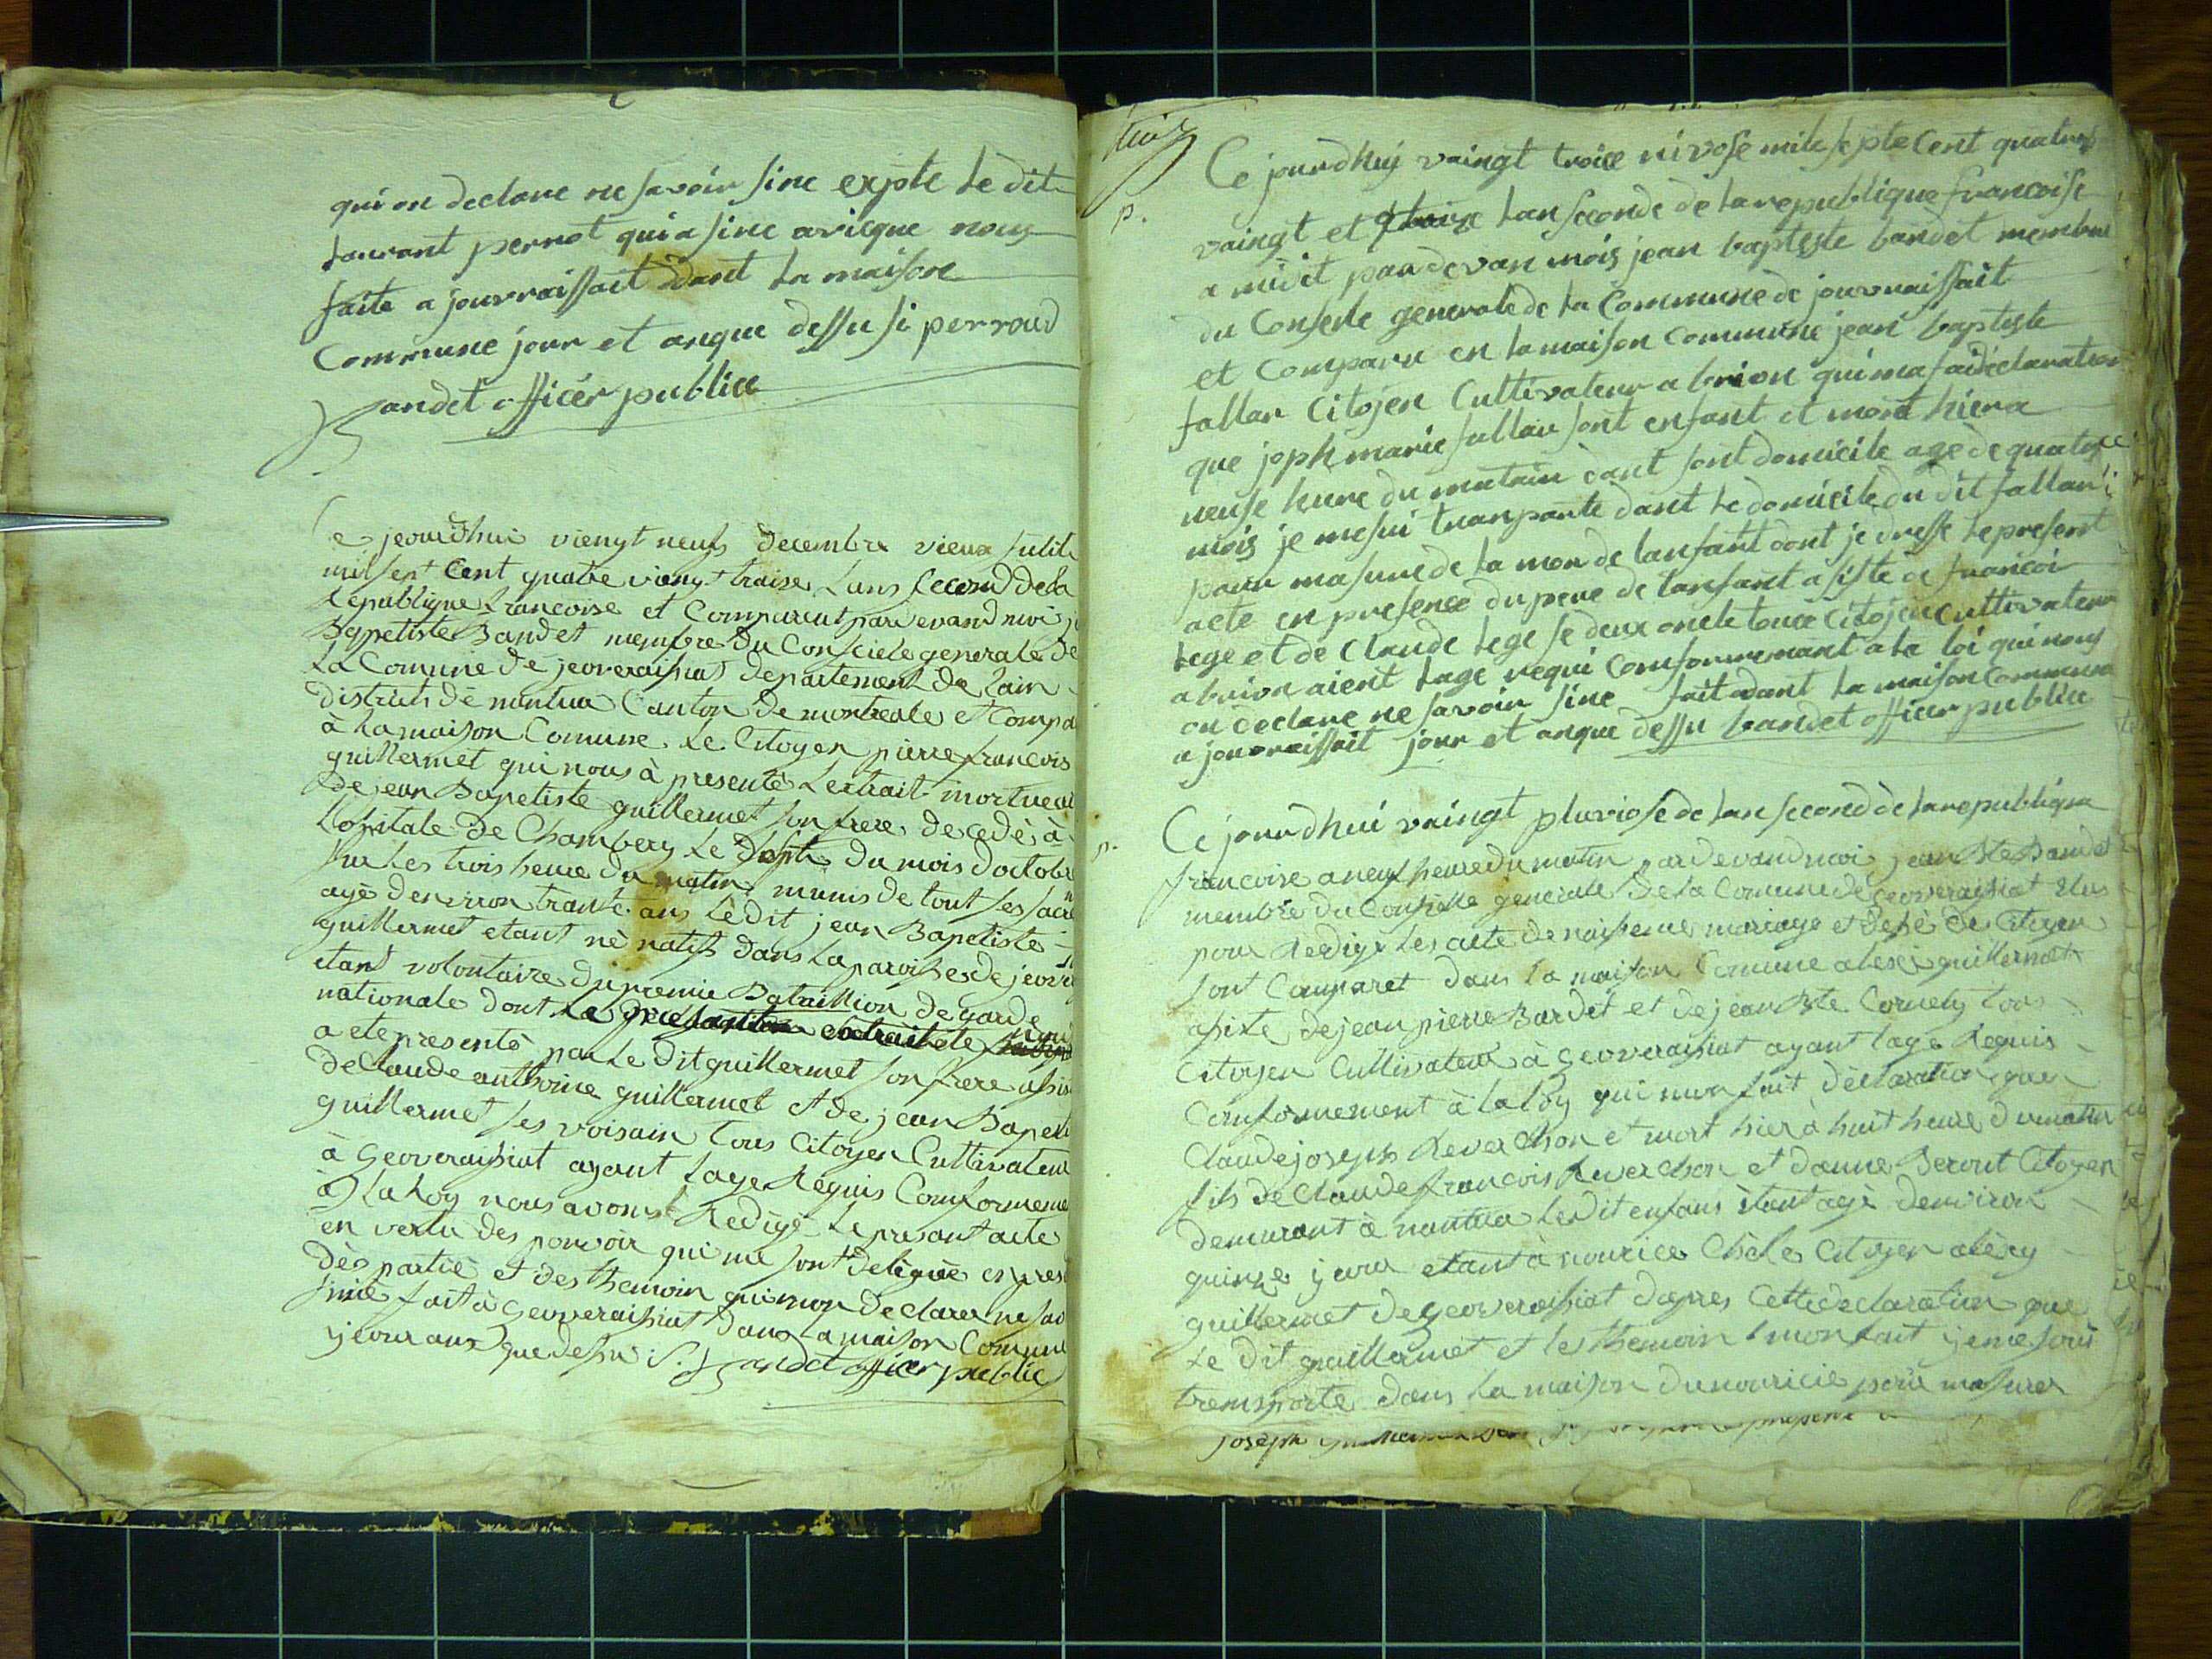 qui on declare ne savoir sine exsple le dit
laurant perrot qui a sine avieque nous
faite a jouvraissait dant la maison
Commune jour et anque dessu si perroud
Bandet officér publice
Ce jeourdhui viengt neufs decembre vieux stile
mil sept Cent quatre viengt traise Lans Second de la
Republique francoise et Comparut pardevand moi j
Bapetiste Bandet membre du Consciele generale de
La Comune de jeoveraisiat departement de Lain
distriats de nantua Canton de montreale et Compa
à La maison Comune Le Citoyen pierre francois
guillermet qui nous à presentè Lextrait mortueai
de jean Bapetiste guillermet son frere decedè à
Lopitale de Chambery Le Sept du mois doctobre
sur Les trois heure du matin munis de tout ses sacre
agè denviron trante ans Lè dit jean Bapetiste
guillermet etant nè natifs dans La paroisse de jeovr
etant volontaire du premie Bataillion de garde
nationale dont La extrait ete
a ete presentè par Le dit guillermet son frere assis
de Claude anthoine guillermet et de jean Bapeti
guillermet ses voisain tous Citoyen Cultivateur
à Geoveraisiat ayant Lage Requis Comformeme
à La Loy nous avons Redigè Le presant acte
en vertu des pouvoir qui me sont deleguè en pres
des partiè et des themoin qui mon declarer ne sav
sinè fait à Geoveraisiat dans La maison Comune
jeour ans que dessu S. Bandet officer public
p.
Ce jourdhuy vaingt troice nivose mile septe Cent quatre
vaingt et lan seconde de la republique francoise
a midit pardevan mois jean baptiste bandet membre
du Conseile generale de la Commune de jouvraissait
et Comparu en la maison Commune jean baptiste
fallar Citojen Cultivateur a brion qui ma fai déclaration
que joph marie fallar sont enfant et mort hiera
neuse hure du matain dant sont domicile age de quatorce
mois je me sui tranparte dant le domicile du dit fallar
pour masure de la mor de lanfant dont je dresse le present
acte en presence du pere de lanfant asiste de francoi
lege et de Claude lege se deux oncle touce Citojen Cultivateur
a brion aient lage requi Comformemant a la loi qui nous
on déclare ne savoir sine fait dant la maison Commune
a jouvraissait jour et anque dessu bandet officer publice
p.
Ce jourdhui vaingt pluviose de lan second de la republique
francoise a neuf heure du matin pardevand moi jean Bte Bandet
membre du Consielle generale de la Comune de geoveraisiat elus
pour Redige Les acte de naissence mariage et desè de Citoyen
sont Comparet dans La maison Comune alexi guillermet
asixte de jean pierre Bardet et de jean Bte Cornety tous
Citoyen Cultivateur à geoveraisiat ayant Lage Requis
Comformement à La Loy qui mon fait declaration que
Claude joseph Reverchon et mort hier à huit heure du matin
fils de Claude francois Reverchon et danne Serout Citoyen
demeurant à nantua Ledit enfans etant agè denviron
quinze jour etant à nourice Chè le Citoyen alexy
guillermet de geoveraisiat dapres Cette declaration que
Le dit guillermet et les themoin mon fait je me suis
transporte dans La maison du nouricie pour masurer
joseph